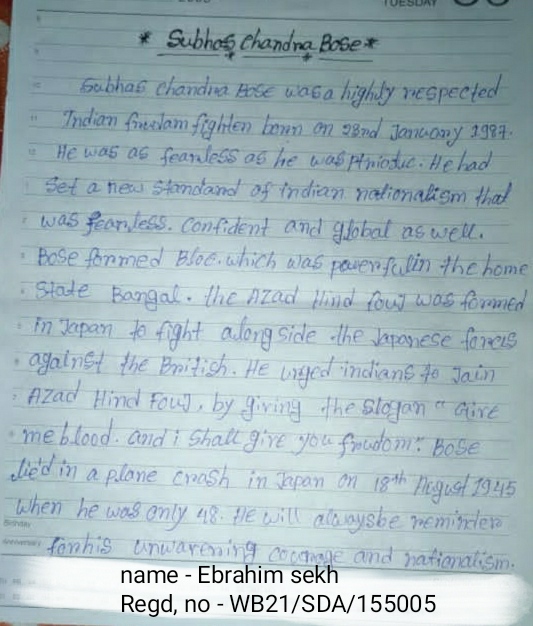 TUESDAY
* Subhas Chandra Bose *
Subhas Chandra Bose was a highly respected
Indian freedam fighter born on 23nd January 1987.
He was as fearless as he was ptriodic. He had
Set a new standard of indian nationalism that
was fearless. Confident and global as well.
Bose formed Bloc. which was powerful in the home
State Bangal. the Azad Hind fouj was formed
in Japan to fight along side the Japanese forces
against the British. He urged indians to Jain
Azad Hind Fouj, by giving the slogan " Give
me blood. and i shall give you freudom". Bose
died in a plane crash in Japan on 18th August 1945
when he was only 48. He will alwaysbe reminder
Birthday
Anniversary
forhis unwarening courage and nationalism.
name - Ebrahim sekh
Regd, no - WB21/SDA/155005